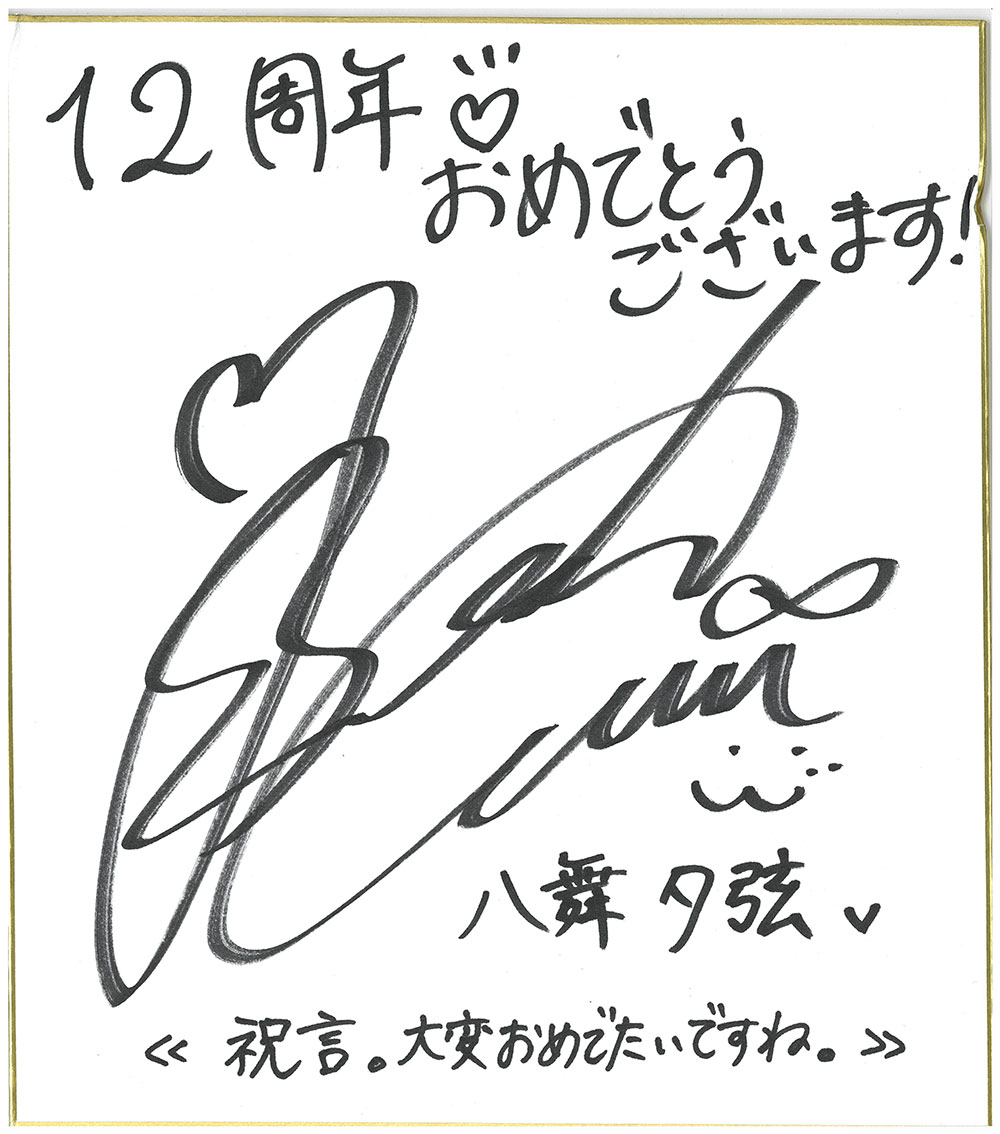 12周年♡
おめでとう
ございます!
八舞 夕弦
≪ 祝言。大変おめでたいですね。≫